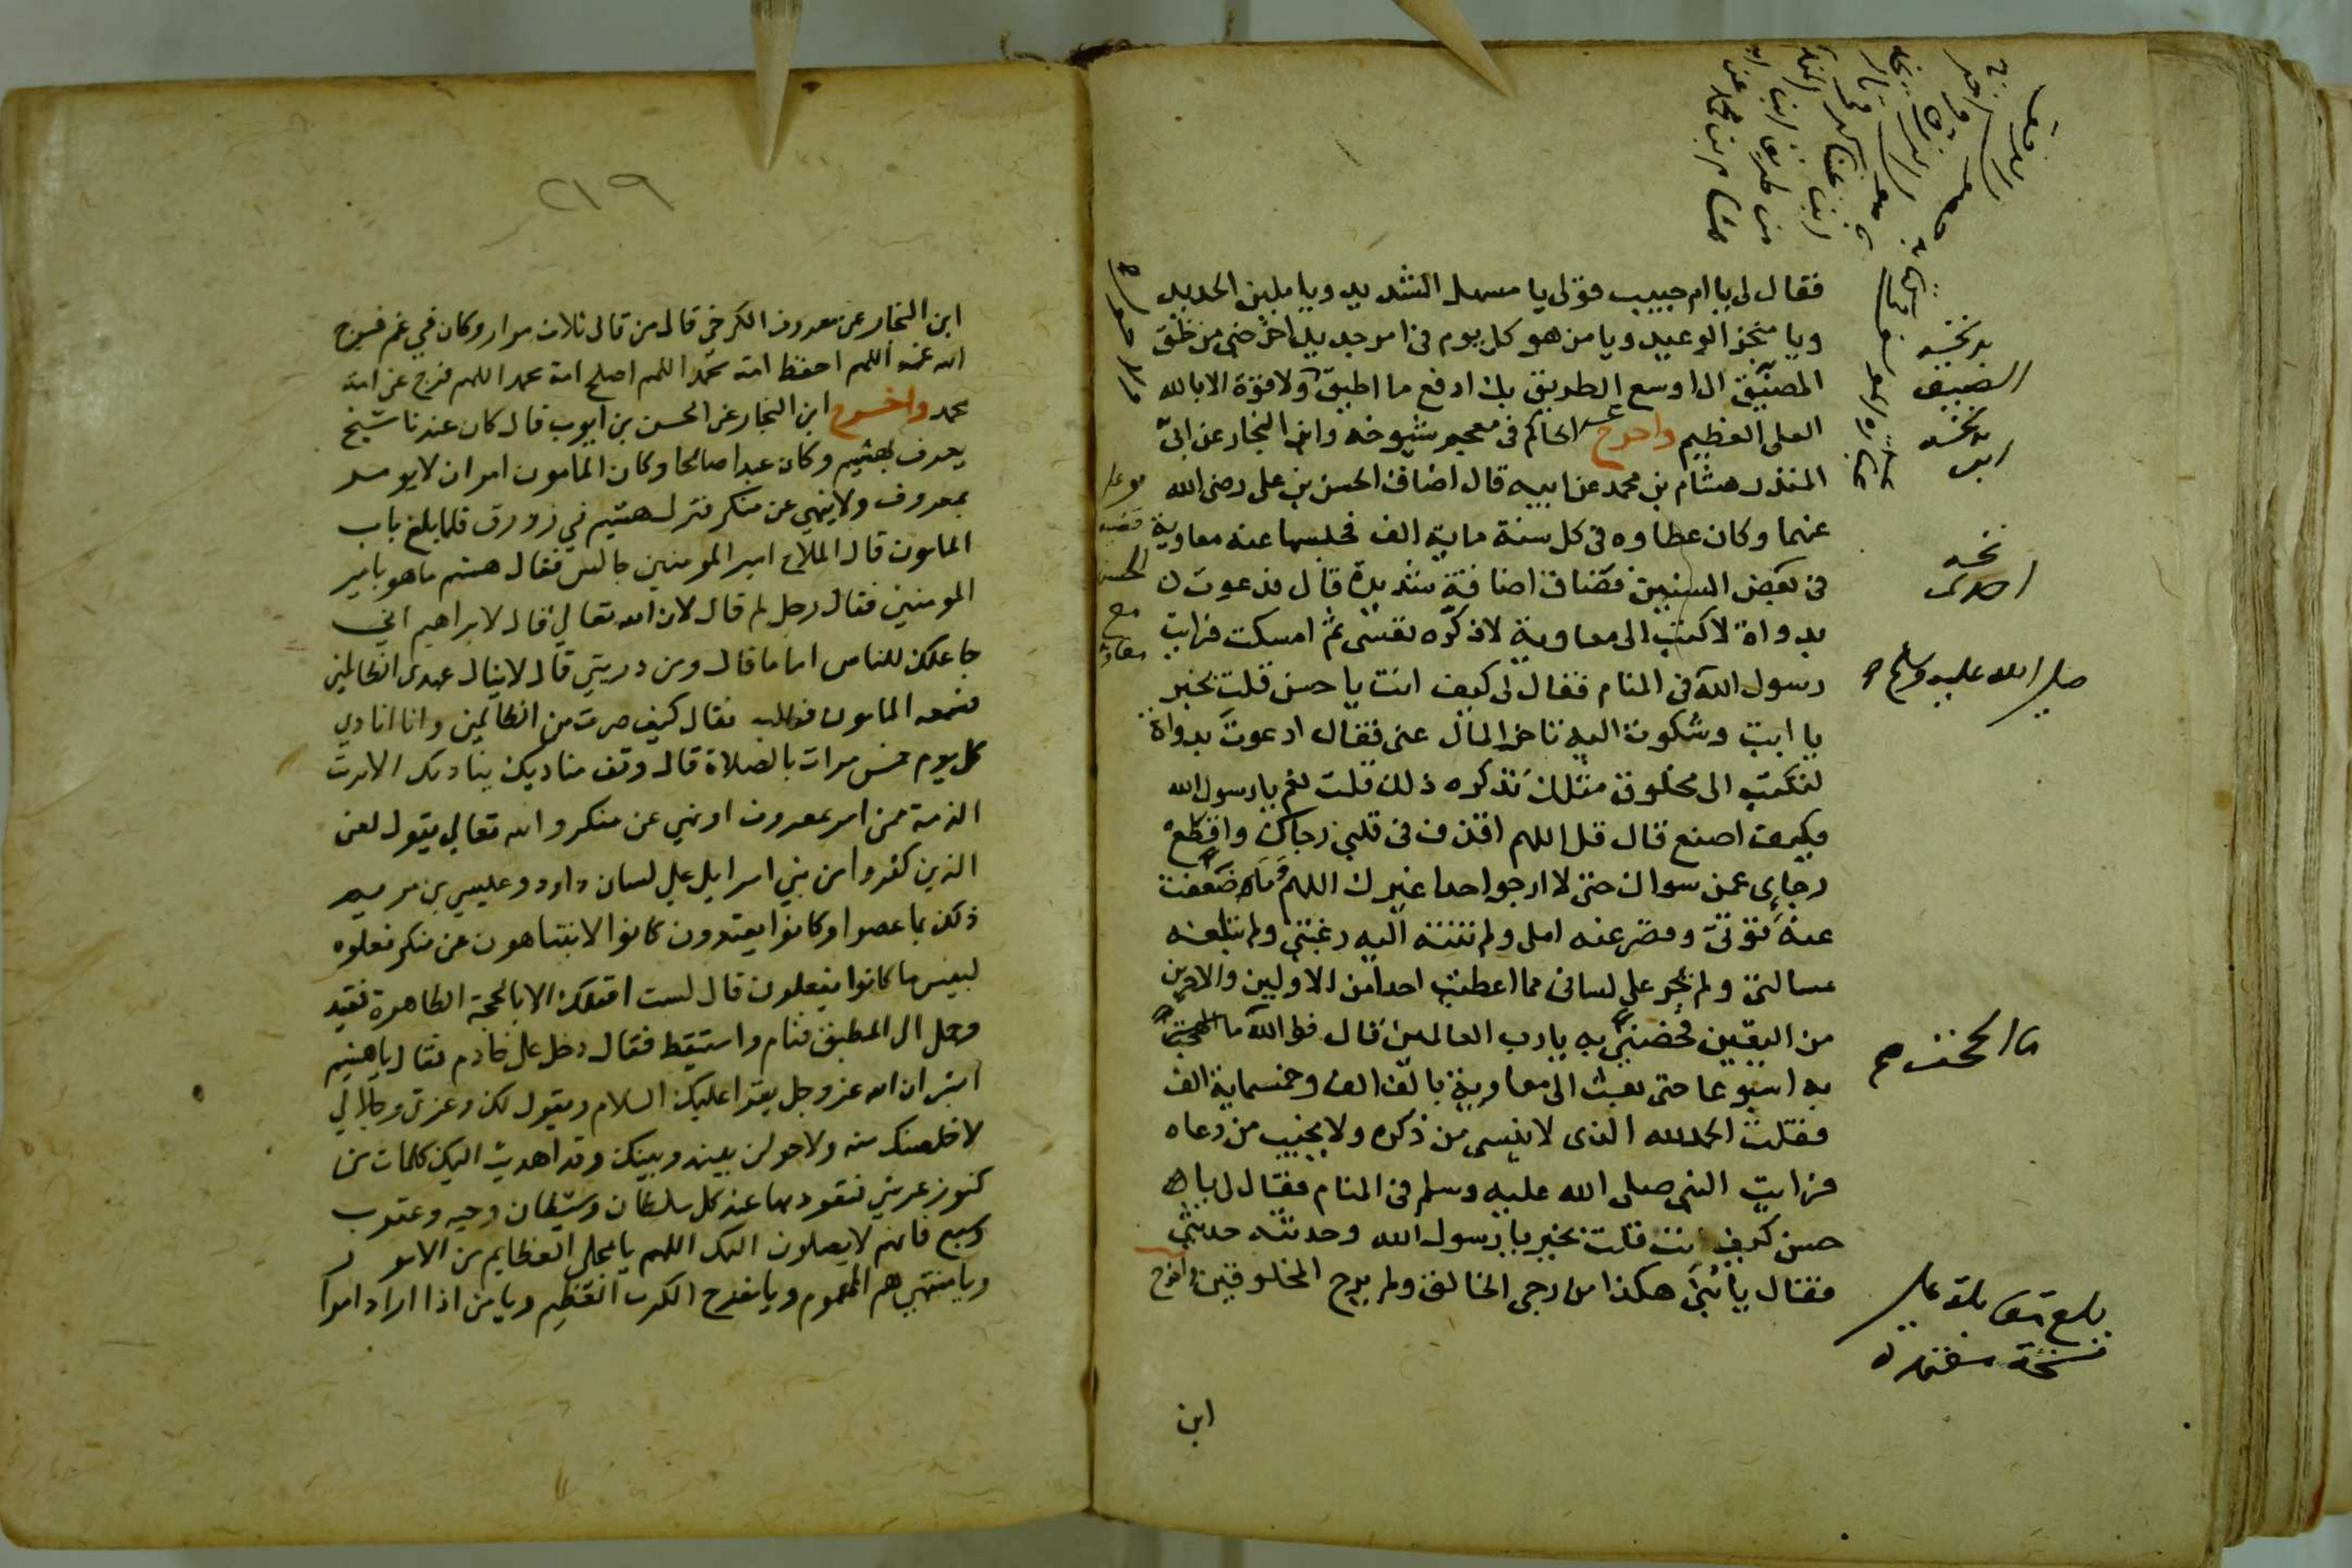 فقال لى يا ام حبيب قولى يا مسهل الشديد ويا ملين الحديد
ويا منجز الوعيد ويا من هو كل يوم فى امر جديد اخرجنى من حلق
المضيق الى اوسع الطريق بك ادفع ما اطيق ولا قوة الا بالله
العلى العظيم واخرج الحاكم فى معجم شيوخه وابن النجار عن ابى
المنذر هشام بن محمد عن ابيه قال اضاق الحسن بن على رضى الله
عنهما وكان عطاوه فى كل سنة ماية الف فحبسها عنه معاوية
فى بعض السنين فضاق اضاقة شديدة قال فدعوت
بدواة لاكتب الى معاوية لاذكره نفسى ثم امسكت فرايت
رسول الله فى المنام فقال لى كيف انت يا حسن قلت بخير
يا ابت وشكوت اليه تاخر المال عنى فقال ادعوت بدواة
لتكتب الى مخلوق مثلك تذكره ذلك قلت نعم يا رسول الله
فكيف اصنع قال قل اللهم اقذف فى قلبى رجاك واقطع
رجاى عمن سواك حتى لا ارجو احدا غيرك اللهم وما ضعفت
عنه قوتى وقصر عنه املى ولم تنته اليه رغبتى ولم تبلغه
مسالتى ولم يجر على لسانى مما اعطيت احدا من الاولين والاخرين
من اليقين فخصنى به يا رب العالمين قال فوالله ما الححت
به اسبوعا حتى بعث الى معاوية بالف الف وخمسماية الف
فقلت الحمد لله الذى لا ينسى من ذكره ولا يخيب من دعاه
فرايت النبى صلى الله عليه وسلم فى المنام فقال لى يا
حسن كيف انت قلت بخير يا رسول الله وحدثته حديثى
فقال يا بنى هكذا من رجى الخالق ولم يرج المخلوقين واخرج
ابن
نخسه
المضيق
نخسه
صلى الله عليه وسلم
ما الححت
بلغ مقابلة على
نسخة معتمدة
قصة
الحسن
مع
معاوية
٢١٩
ابن النجار عن معروف الكرخى قال من قال ثلاث مرار وكان في غم فرج
الله عنه اللهم احفظ امة محمد اللهم اصلح امة محمد اللهم فرج عن امة
محمد واخرج ابن النجار عن الحسن بن ايوب قال كان عندنا شيخ
يعرف بهشيم وكان عبدا صالحا وكان المامون امر ان لا يومر
بمعروف ولا ينهي عن منكر فنزل هشيم في زورق فلما بلغ باب
المامون قال الملاح امير المومنين جالس فقال هشيم ما هو بامير
المومنين فقال رجل لم قال لان الله تعالي قال لابراهيم اني
جاعلك للناس اماما قال ومن ذريتي قال لا ينال عهدى الظالمين
فسمعه المامون فطلبه فقال كيف صرت من الظالمين وانا انادي
كل يوم خمس مرات بالصلاة قال وقف مناديك ينادى الا برت
الذمة ممن امر بمعروف او نهي عن منكر والله تعالي يقول لعن
الذين كفروا من بني اسرايل علي لسان داود وعليسي بن مريم
ذلك بما عصوا وكانوا يعتدون كانوا لا يتناهون عن منكر فعلوه
لبيس ما كانوا يفعلون قال لست اقتلك الا بالحجة الظاهرة فقيد
وحمل الى المطبق فنام واستيقظ فقال دخل على خادم فقال يا هشيم
ابشر ان الله عز وجل يقرا عليك السلام ويقول لك وعزتي وجلالي
لاخلصنك منه ولاحولن بينه وبينك وقد اهديت اليك كلمات من
كنوز عرشي فتعوذ بها عند كل سلطان وشيطان وحيه وعقرب
وسبع فانهم لا يصلون اليك اللهم يا مجلي العظايم من الامور
ويا منتهي هم المهموم ويا مفرج الكرب العظيم ويا من اذا اراد امرا